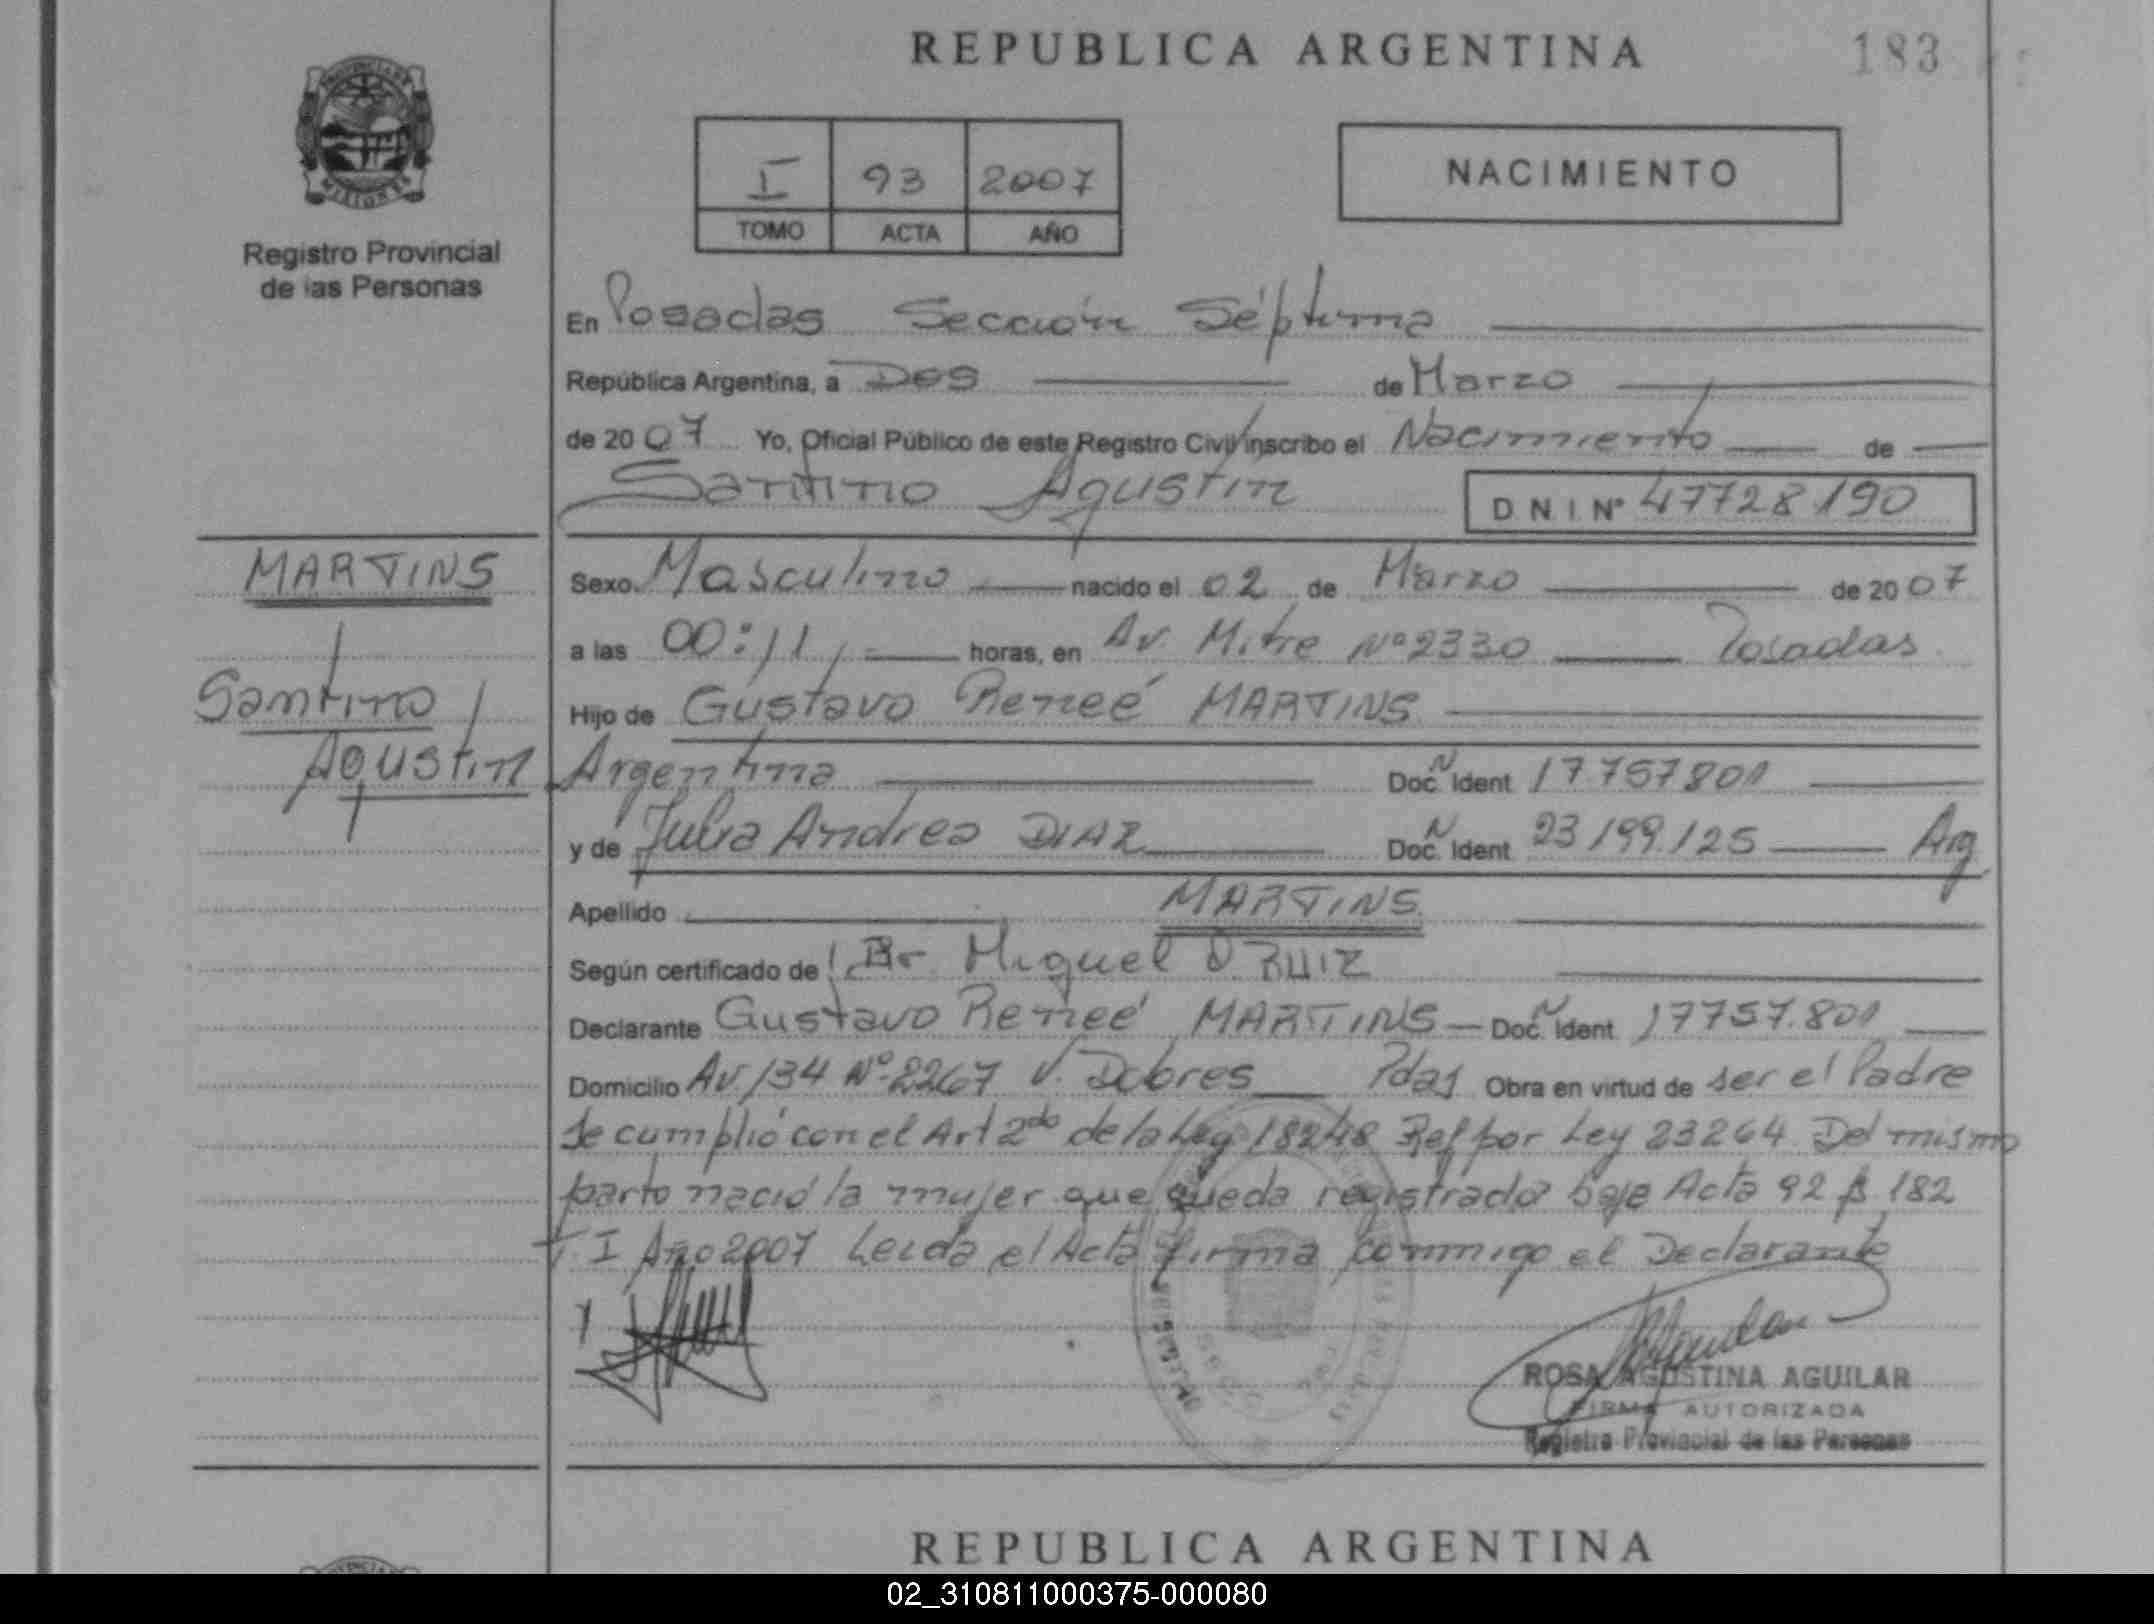 REPUBLICA ARGENTINA
183
PROVINCIA DE
MISIONES
Registro Provincial
de las Personas
I 93 2007
TOMO ACTA AÑO
NACIMIENTO
En Posadas Sección Séptima
República Argentina, a Dos de Marzo
de 2007 Yo, Oficial Público de este Registro Civil inscribo el Nacimiento de
Santino Agustín D.N.I. Nº 47728190
MARTINS
Santino
Agustín
Sexo Masculino nacido el 02 de Marzo de 2007
a las 00:11 horas, en Av. Mitre Nº 2330 Posadas
Hijo de Gustavo Reneé MARTINS
Argentina Doc. N Ident 17757801
y de Julia Andrea DIAZ Doc. N Ident 23199125 Arg
Apellido MARTINS
Según certificado de Dr. Miguel O RUIZ
Declarante Gustavo Reneé MARTINS Doc. N Ident 17757.801
Domicilio Av. 134 Nº 2267 V. Dolores Pdas Obra en virtud de ser el Padre
Se cumplió con el Art 2do de la Ley 18248 Ref por Ley 23264. Del mismo
parto nació la mujer que queda registrado baje Acta 92 fº 182
T. I Año 2007 Leida el Acta firma conmigo el Declarante
ROSA AGUSTINA AGUILAR
FIRMA AUTORIZADA
Registro Provincial de las Personas
REPUBLICA ARGENTINA
02_310811000375-000080